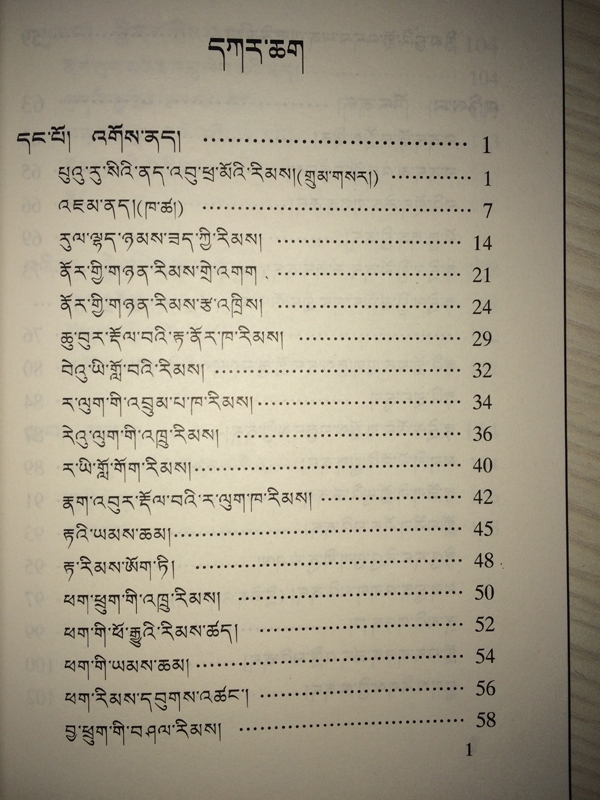 དཀར་ཆག
དང་པོ། འགོས་ནད། ································ 1
པུའུ་རུ་སིའི་ནད་འབུ་ཕྲ་མོའི་རིམས།(གྲུམ་གསར།) ············ 1
འཇམ་ནད།(ཁ་ཚ།) ································ 7
རུལ་ལྷད་ཉམས་ཟད་ཀྱི་རིམས། ······················ 14
ནོར་གྱི་གཉན་རིམས་གྲེ་འགག ······················ 21
ནོར་གྱི་གཉན་རིམས་རྩ་འཁྲིས། ······················ 24
ཆུ་བུར་རྡོལ་བའི་རྟ་ནོར་ཁ་རིམས། ···················· 29
བེའུ་ཡི་གློ་བའི་རིམས། ······························ 32
ར་ལུག་གི་འབྲུམ་པ་ཁ་རིམས། ························ 34
རེའུ་ལུག་གི་འཁྲུ་རིམས། ···························· 36
ར་ཡི་གློ་གོག་རིམས། ································ 40
རྣག་འབུར་རྡོལ་བའི་ར་ལུག་ཁ་རིམས། ·················· 42
རྟའི་ཡམས་ཆམ། ·································· 45
རྟ་རིམས་ཨོག་ཏི། ································ 48
ཕག་ཕྲུག་གི་འཁྲུ་རིམས། ···························· 50
ཕག་གི་ཕོ་རྒྱུའི་རིམས་ཚད། ·························· 52
ཕག་གི་ཡམས་ཆམ། ································ 54
ཕག་རིམས་དབུགས་འཚང་། ·························· 56
བྱ་ཕྲུག་གི་བཤལ་རིམས། ···························· 58
1